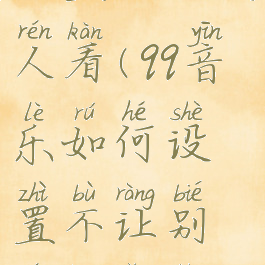 rén kàn yīn
人看(99音
lè rú hé shè
乐如何设
zhì bù ràng bié
置不让别